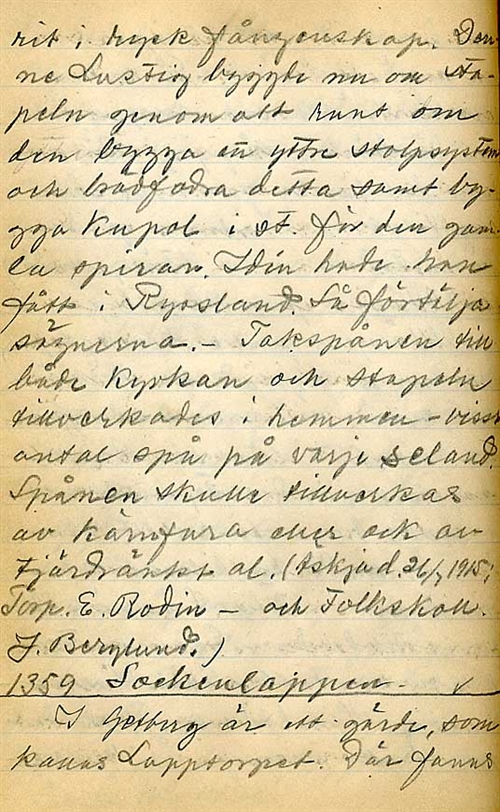 rit i rysk fångenskap. Den-
ne Lustig byggde nu om sta-
peln genom att runt om
den bygga en yttre stolpsystem
och brädfodra detta samt by-
gga kupol i st. för den gam-
la spiran. Idén hade han
fått i Ryssland. Så förtälja
sägnerna. - Takspånen till
både kyrkan och stapeln
tillverkades i hemmen - visst
antal spå på varje seland.
Spånen skulle tillverkas
av kärnfura eller ock av
tjärdränkt al. (Askja d. 26/7 1915;
Torp. E. Rodin - och Folkskoll.
J. Berglund.)
1359 Sockenlappen. ✓
I Getberg är ett gärde, som
kallas Lapptorpet. Där fanns